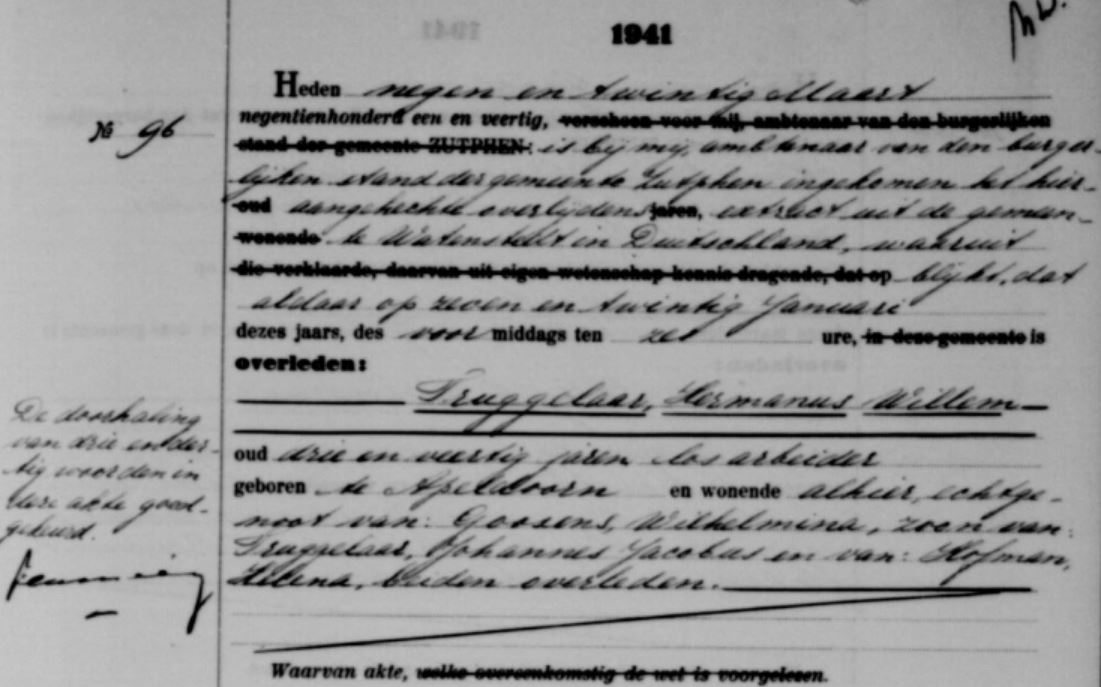 1941
Heden negen en twintig Maart
№ 96
negentienhonderd een en veertig, verscheen voor mij, ambtenaar van den burgerlijken
stand der gemeente ZUTPHEN: is bij mij, ambtenaar van den burger-
lijken stand der gemeente Zutphen ingekomen het hier-
oud aangehechte overlijdens jaren, extract uit de gemeen-
wonende te Watenstedt in Duitschland, waaruit
die verklaarde, daarvan uit eigen wetenschap kennis dragende, dat op blijkt, dat
aldaar op zeven en twintig Januari
dezes jaars, des voor middags ten zes ure, in deze gemeente is
overleden:
Truggelaar, Hermanus Willem
oud drie en veertig jaren los arbeider
geboren te Apeldoorn en wonende alhier, echtge-
noot van: Goosens, Wilhelmina, zoon van:
Truggelaar, Johannes Jacobus en van: Hofman,
Helena, beiden overleden.
De doorhaling
van drie en der-
tig woorden in
deze akte goed-
gekeurd.
Waarvan akte, welke overeenkomstig de wet is voorgelezen.